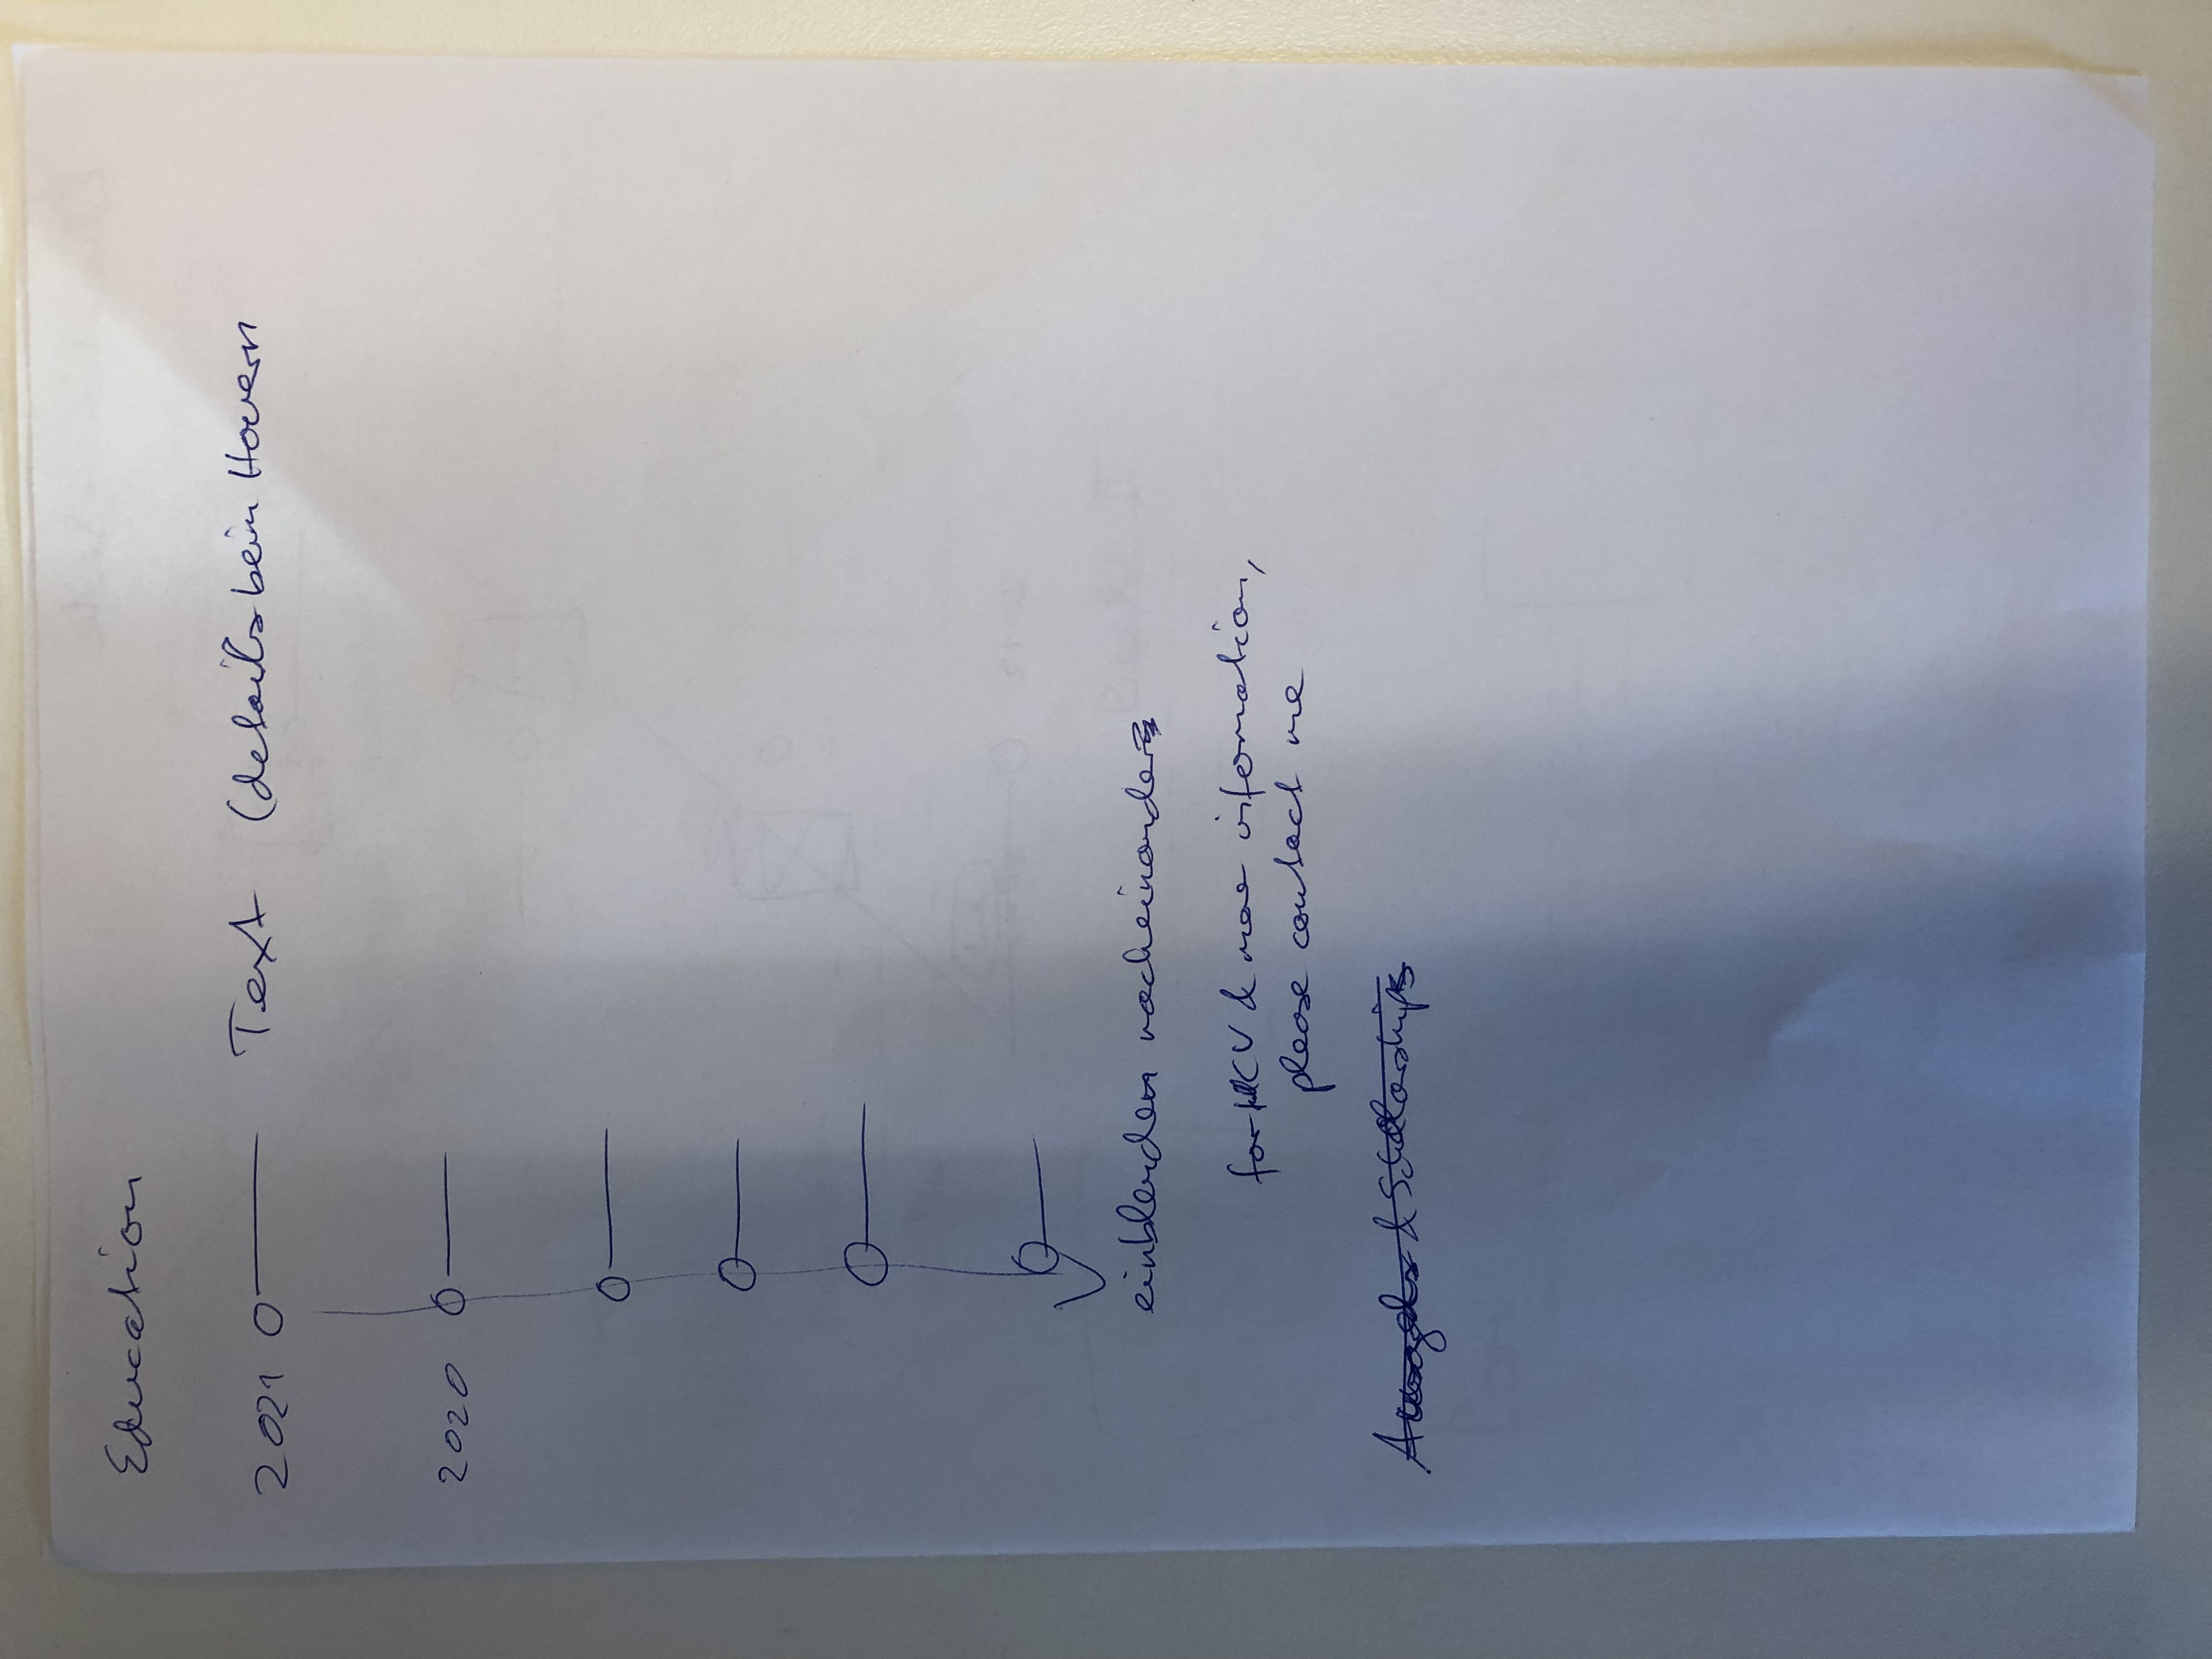 Education
2021 Text (details beim Hovern
2020
einblenden nacheinander
for full CV & more information,
please contact me
& Scholarships